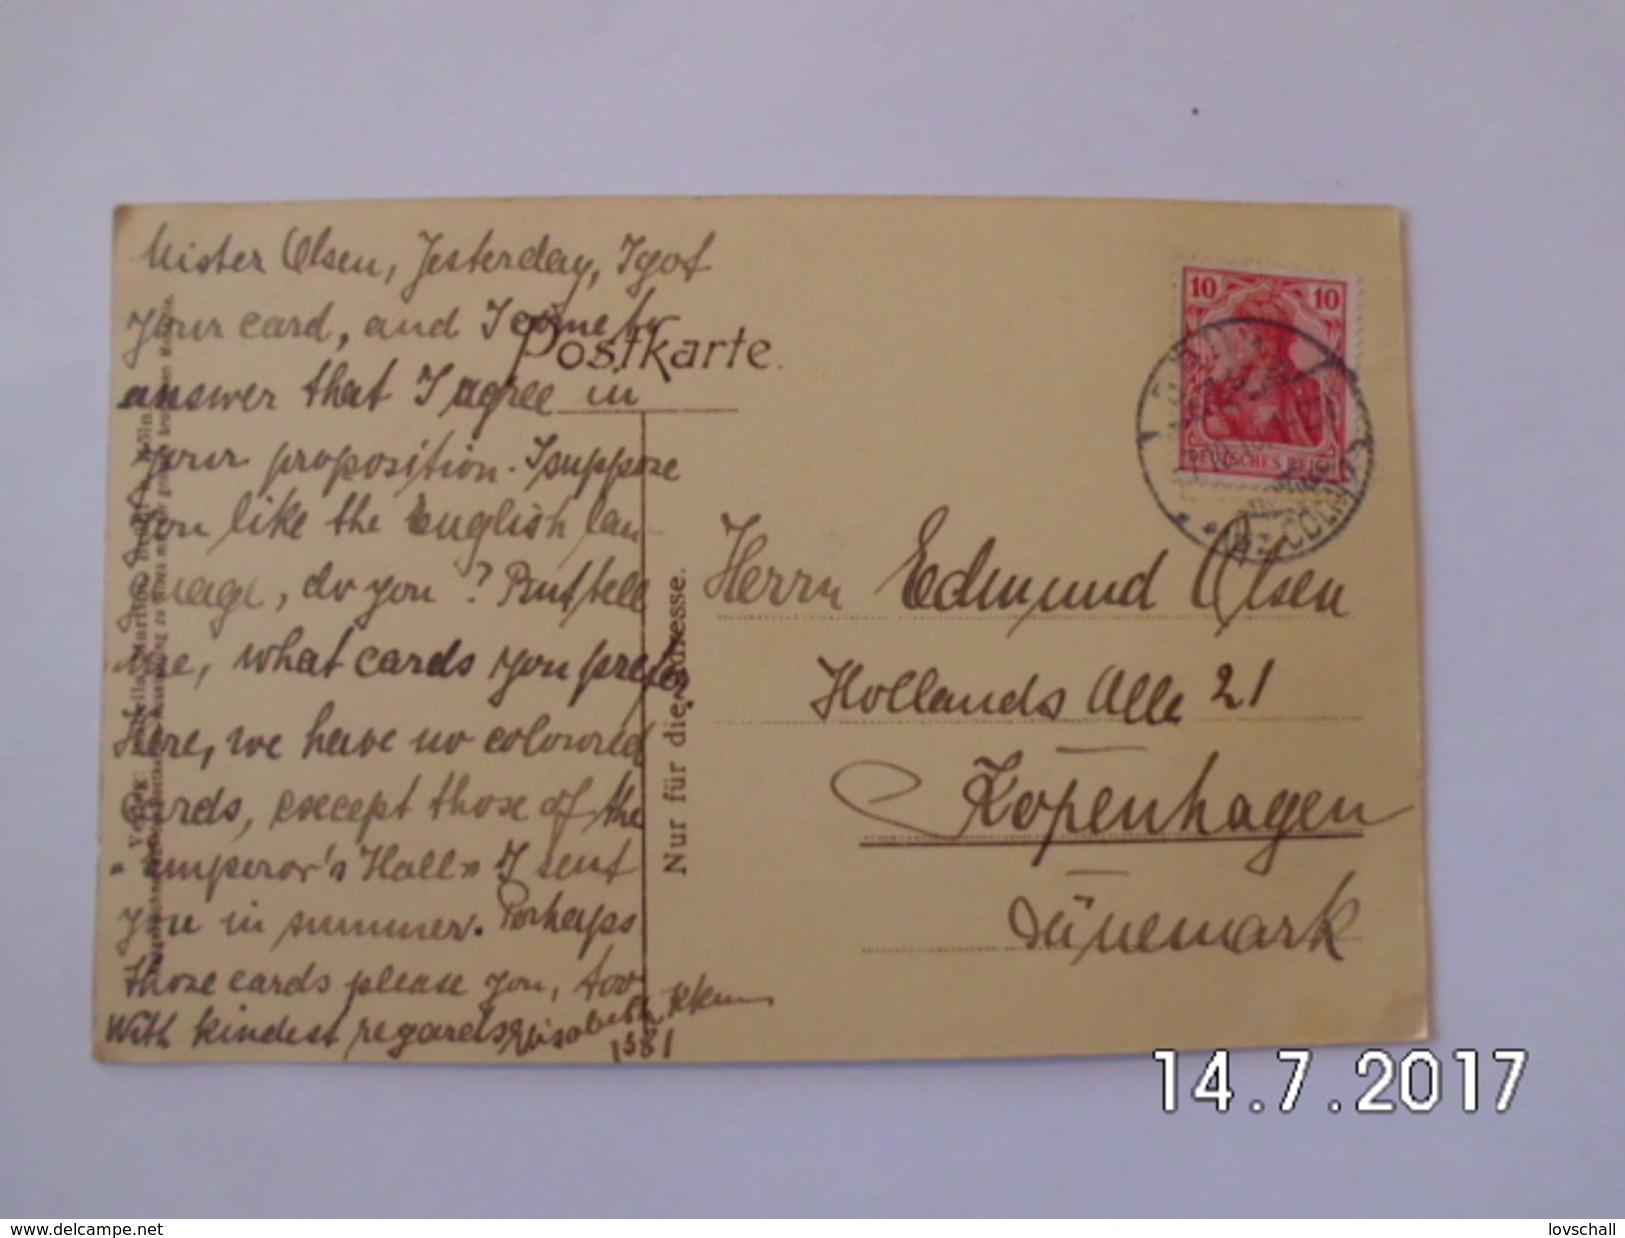 Mister Olsen, Jesterday, I got
your card, and I come to
answer that I agree in
your proposition. I suppose
you like the English lan-
guage, do you? But tell
me, what cards you prefer
Here, we have no coloured
cards, except those of the
"emperor's Hall" I sent
you in summer. Perhaps
those cards please you, too
With kindest regards Elisabeth
1581
Postkarte.
Nur für die Adresse.
10 10
DEUTSCHES REICH
Herrn Edmund Olsen
Hollands Alle 21
Kopenhagen
Dänemark
14.7.2017
www.delcampe.net
lovschall